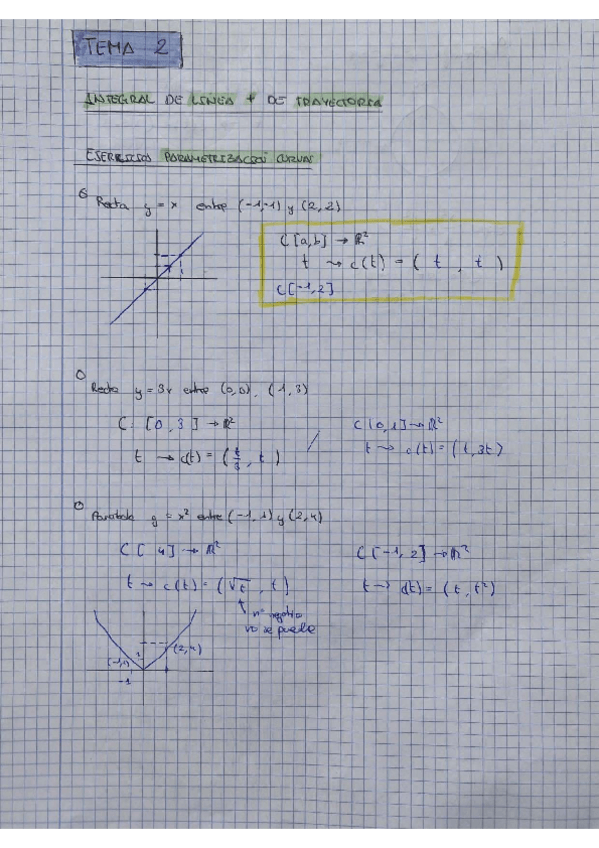 TEMA 2
INTEGRAL DE LINEA + DE TRAYECTORIA
EJERCICIOS PARAMETRIZACION CURVAS
Recta y = x entre (-1,-1) y (2,2)
C [a,b] → R²
t → c(t) = ( t , t )
C[-1,2]
1
Recta y = 3x entre (0,0), (1,3)
C: [0,3] → R²
t → c(t) = ( t/3 , t )
/
C [0,1] → R²
t → c(t) = ( t, 3t )
Parábola y = x² entre (-1,1) y (2,4)
C [ 4] → R²
t → c(t) = ( √t , t )
nº negativo
no se puede
C [-1,2] → R²
t → c(t) = ( t, t² )
(2,4)
(-1,1)
1
-1